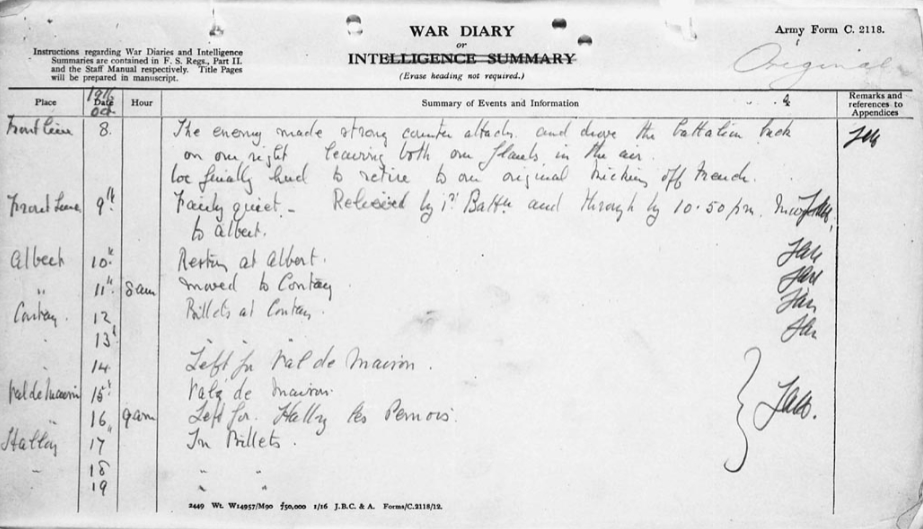 WAR DIARY
or
INTELLIGENCE SUMMARY
(Erase heading not required.)
Army Form C. 2118.
Original
Instructions regarding War Diaries and Intelligence
Summaries are contained in F. S. Regs., Part II.
and the Staff Manual respectively. Title Pages
will be prepared in manuscript.
Place 1916 Date Oct Hour Summary of Events and Information Remarks and references to Appendices
Front line 8. The enemy made strong counter attacks and drove the battalion back
on our right leaving both our flanks in the air.
We finally had to retire to our original kicking off trench.
Front Line 9th Fairly quiet. Relieved by 1st Battn and through by 10.50 pm.
to Albert.
Albert 10th Resting at Albert.
" 11th 8am Moved to Contay
Contay. 12 Billets at Contay.
" 13th " "
" 14 Left for Val de Maison.
Val de Maison 15th Val de Maison.
16 9am Left for Halloy les Pernois.
Halloy 17 In Billets.
" 18 " "
19 " "
2449 Wt. W14957/M90 750,000 1/16 J.B.C. & A. Forms/C.2118/12.